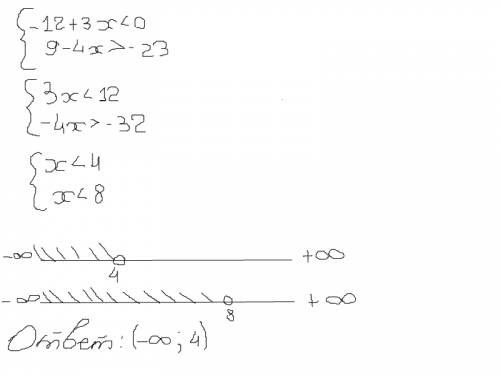 {-12+3x<0
9-4x>-23
{3x<12
-4x>-32
{x<4
x<8
-∞ +∞
4
-∞ +∞
8
Ответ: (-∞; 4)